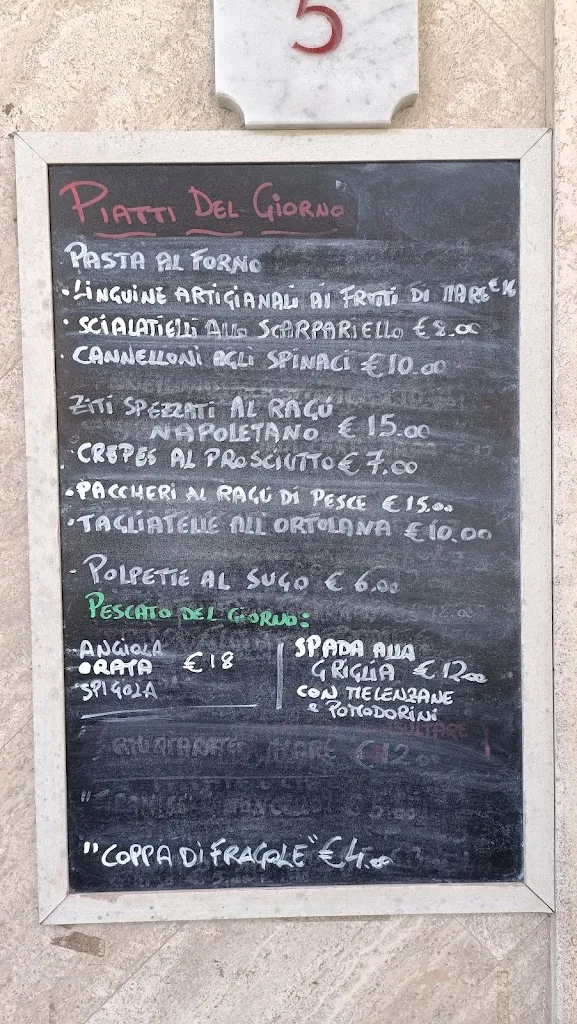 5
PIATTI DEL GIORNO
PASTA AL FORNO
• LINGUINE ARTIGIANALI AI FRUTTI DI MARE € 16
• SCIALATIELLI ALLO SCARPARIELLO € 8.00
• CANNELLONI AGLI SPINACI € 10.00
ZITI SPEZZATI AL RAGÚ
NAPOLETANO € 15.00
• CREPES AL PROSCIUTTO € 7.00
• PACCHERI AL RAGÚ DI PESCE € 15.00
• TAGLIATELLE ALL'ORTOLANA € 10.00
- POLPETTE AL SUGO € 6.00
PESCATO DEL GIORNO:
- ANGIOLA
ORATA € 18
- SPIGOLA
SPADA ALLA
GRIGLIA € 12.00
CON MELENZANE
e POMODORINI
"COPPA DI FRAGOLE" € 4.00